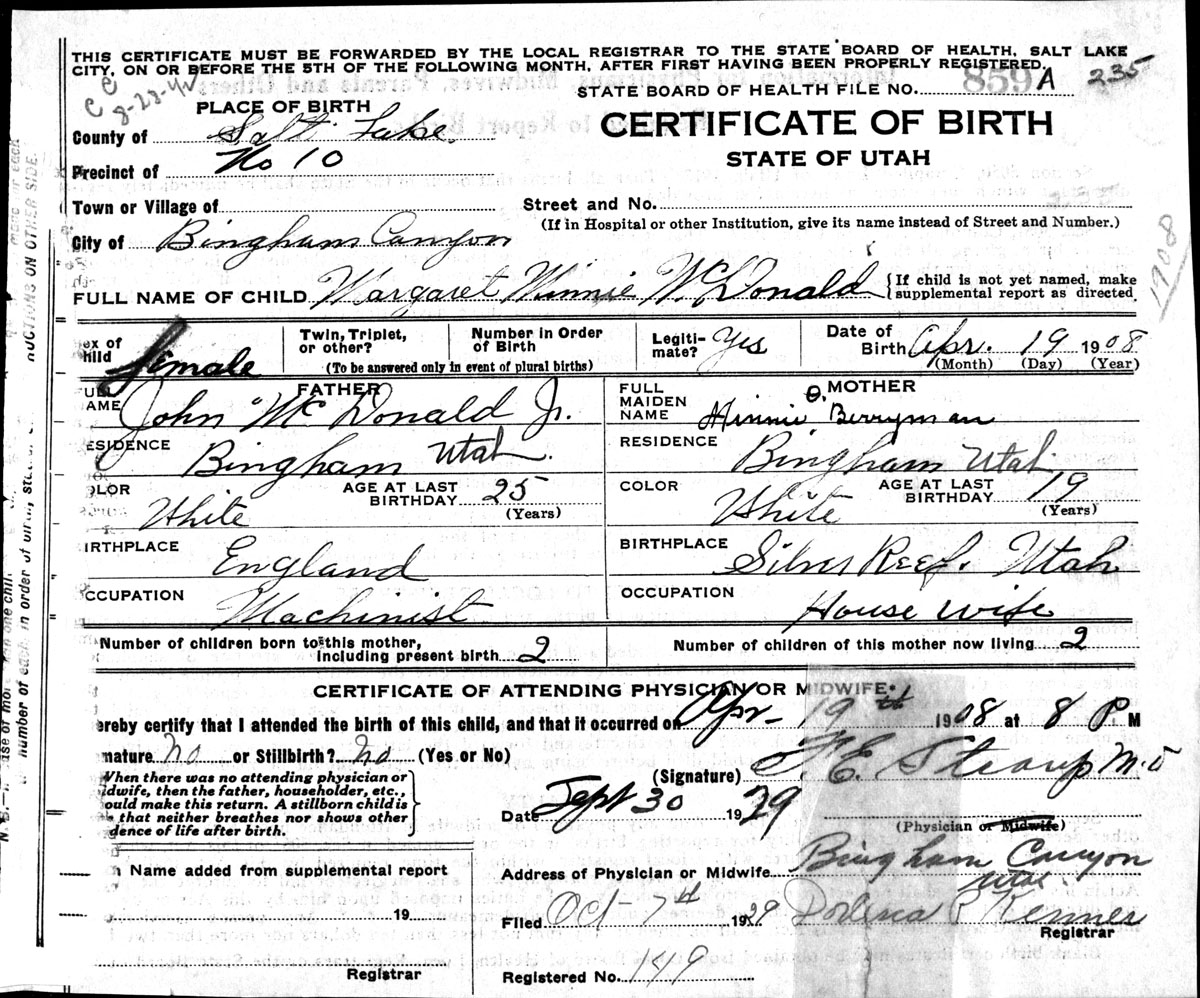 THIS CERTIFICATE MUST BE FORWARDED BY THE LOCAL REGISTRAR TO THE STATE BOARD OF HEALTH, SALT LAKE
CITY, ON OR BEFORE THE 5TH OF THE FOLLOWING MONTH, AFTER FIRST HAVING BEEN PROPERLY REGISTERED.
STATE BOARD OF HEALTH FILE NO. 859 A 235
PLACE OF BIRTH
CERTIFICATE OF BIRTH
STATE OF UTAH
County of Salt Lake
Precinct of No 10
Town or Village of
Street and No.
(If in Hospital or other Institution, give its name instead of Street and Number.)
City of Bingham Canyon
1908
FULL NAME OF CHILD Margaret Minnie McDonald {If child is not yet named, make
supplemental report as directed
ex of
hild female
Twin, Triplet,
or other?
Number in Order
of Birth
(To be answered only in event of plural births)
Legiti-
mate? Yes
Date of
Birth Apr. 19 1908
(Month) (Day) (Year)
FATHER
NAME John McDonald Jr.
FULL
MAIDEN
NAME
MOTHER
Minnie O. Berryman
ESIDENCE Bingham Utah.
RESIDENCE Bingham Utah
OLOR White
AGE AT LAST
BIRTHDAY 25
(Years)
COLOR White
AGE AT LAST
BIRTHDAY 19
(Years)
IRTHPLACE England
BIRTHPLACE Silver Reef. Utah
CCUPATION Machinist
OCCUPATION House wife
Number of children born to this mother,
including present birth 2
Number of children of this mother now living 2
CERTIFICATE OF ATTENDING PHYSICIAN OR MIDWIFE
ereby certify that I attended the birth of this child, and that it occurred on Apr- 19th 1908 at 8 P. M
mature no or Stillbirth? no (Yes or No)
(Signature) F. E. Straup M.D
When there was no attending physician or
idwife, then the father, householder, etc.,
ould make this return. A stillborn child is
that neither breathes nor shows other
dence of life after birth.
Date Sept 30 1929
(Physician or Midwife)
Address of Physician or Midwife Bingham Canyon
Utah
n Name added from supplemental report
19
Registrar
Filed Oct-7th 1929 P Kenner
Registrar
Registered No. 149